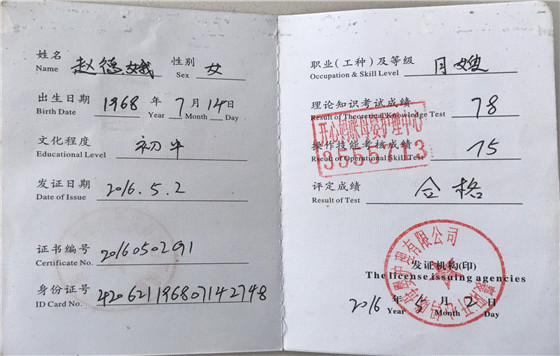 姓名 赵德娥 性别 女
Name Sex
出生日期 1968 年 7 月 14 日
Birth Date Year Month Day
文化程度 初中
Educational Level
发证日期 2016.5.2
Date of Issue
证书编号 2016050291
Certificate No.
身份证号 420621196807142748
ID Card No.
职业(工种)及等级 月嫂
Occupation & Skill Level
理论知识考试成绩 78
Result of Theoretical Knowledge Test
操作技能考核成绩 75
Result of Operational Skill Test
评定成绩 合格
Result of Test
发证机构(印)
The license issuing agencies
2016 年 5 月 2 日
Year Month Day
母婴护理中心
有限公司